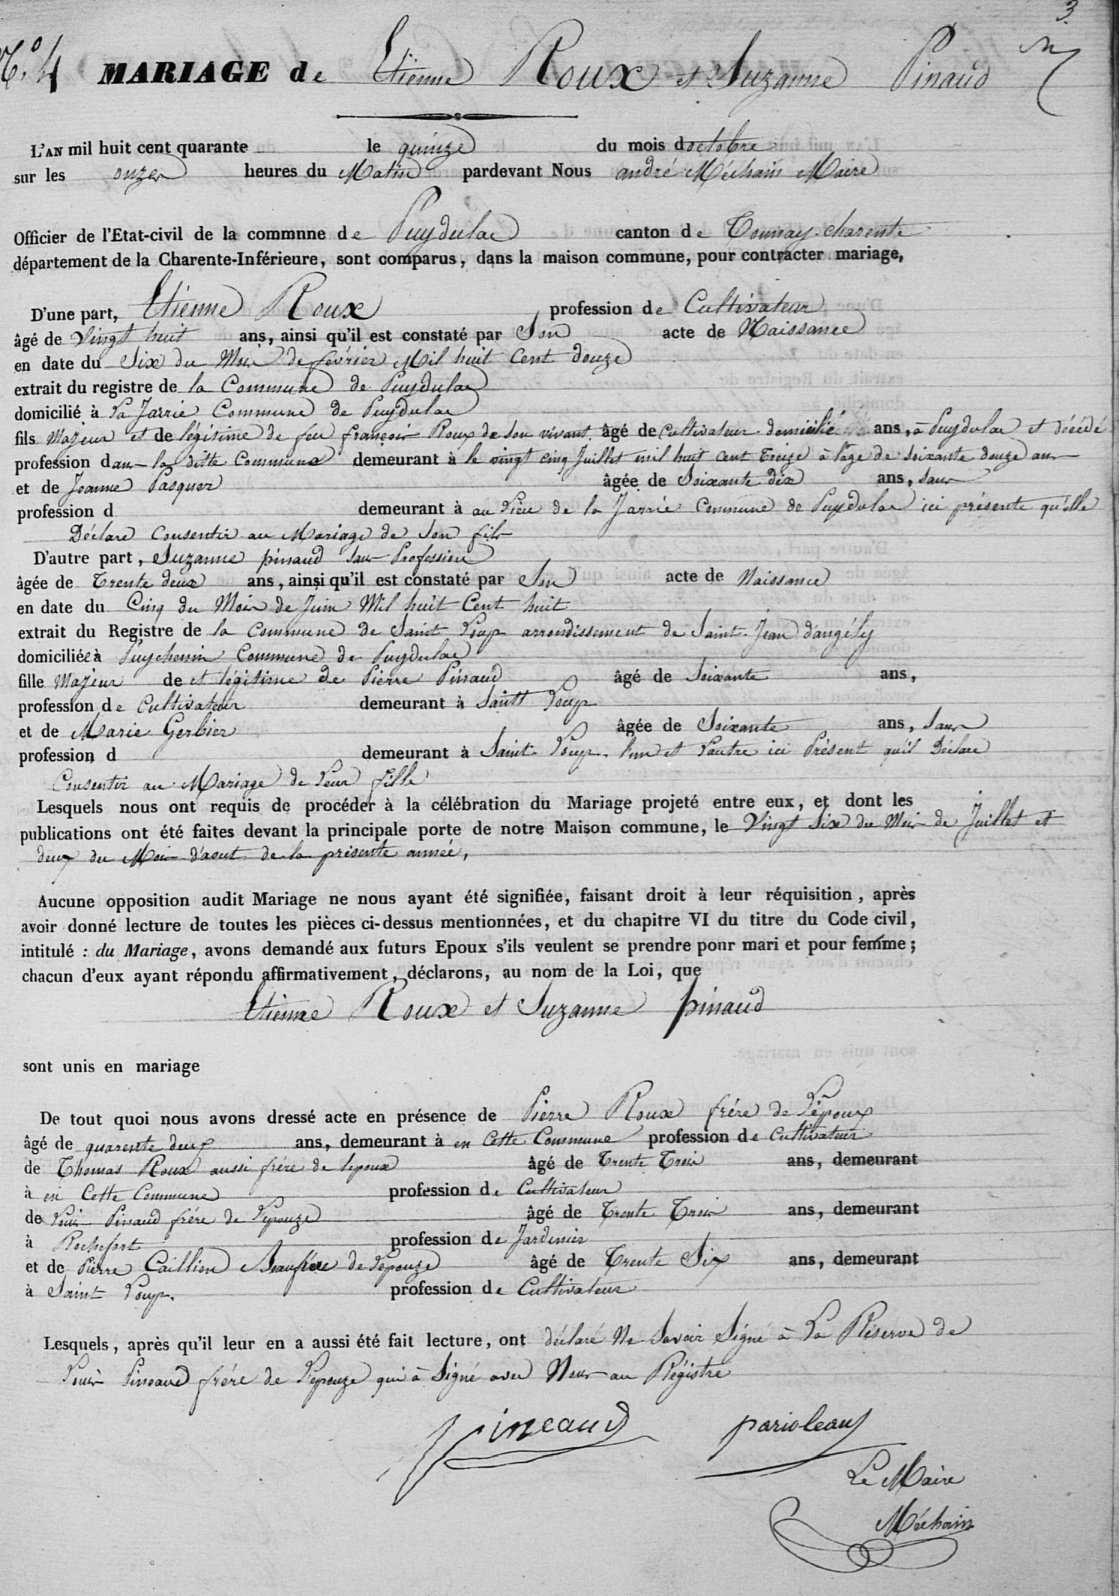 3
N.º 4 MARIAGE de Etienne Roux et Suzanne Pinaud
L'AN mil huit cent quarante le quinze du mois d'octobre
sur les onzes heures du Matin pardevant Nous andré Méchain Maire
Officier de l'Etat-civil de la commnne de Puydulac canton de Tonnay-charente
département de la Charente-Inférieure, sont comparus, dans la maison commune, pour contracter mariage,
D'une part, Etienne Roux profession de Cultivateur
âgé de Vingt huit ans, ainsi qu'il est constaté par Son acte de Naissance
en date du Six du Mois de février Mil huit Cent douze
extrait du registre de la Commune de Puydulac
domicilié à La Jarrie Commune de Puydulac
fils Majeur et de légitime de feu françois Roux de Son vivant âgé de Cultivateur domicilié ans, à Puydulac et décédé
profession d ans la ditte Commune demeurant à le vingt cinq Juillet mil huit Cent Treize à l'age de Soixante douze ans
et de Jeanne Pasquer âgée de Soixante dix ans, sans
profession d demeurant à au Lieu de la Jarrie Commune de Puydulac ici présente qu'elle
Déclare Consentir au Mariage de Son fils
D'autre part, Suzanne pinaud Sans Profession
âgée de Trente deux ans, ainsi qu'il est constaté par Son acte de Naissance
en date du Cinq du Mois de Juin Mil huit Cent huit
extrait du Registre de la Commune de Saint Loup arrondissement de Saint Jean d'angély
domiciliée à Puychenin Commune de Puydulac
fille Majeur de et légitime de Pierre Pinaud âgé de Soixante ans,
profession de Cultivateur demeurant à Saint Loup
et de Marie Gerbier âgée de Soixante ans, Sans
profession d demeurant à Saint Loup. l'un et l'autre ici Présent qu'il Déclare
Consentir au Mariage de Leur fille
Lesquels nous ont requis de procéder à la célébration du Mariage projeté entre eux, et dont les
publications ont été faites devant la principale porte de notre Maison commune, le Vingt Six du Mois de Juillet et
deux du Mois d'aout de la présente année,
Aucune opposition audit Mariage ne nous ayant été signifiée, faisant droit à leur réquisition, après
avoir donné lecture de toutes les pièces ci-dessus mentionnées, et du chapitre VI du titre du Code civil,
intitulé : du Mariage, avons demandé aux futurs Epoux s'ils veulent se prendre pour mari et pour femme ;
chacun d'eux ayant répondu affirmativement, déclarons, au nom de la Loi, que
Etienne Roux et Suzanne pinaud
sont unis en mariage
De tout quoi nous avons dressé acte en présence de Pierre Roux frére de L'époux
âgé de quarente deux ans, demeurant à en Cette Commune profession de Cultivateur
de Thomas Roux aussi frére de lepoux âgé de Trente Trois ans, demeurant
à en Cette Commune profession de Cultivateur
de Louis Pinaud frére de l'épouze âgé de Trente Trois ans, demeurant
à Rochefort profession de Jardinier
et de Pierre Caillion Beaufrére de l'épouze âgé de Trente Six ans, demeurant
à Saint Loup. profession de Cultivateur
Lesquels, après qu'il leur en a aussi été fait lecture, ont déclaré Ne Savoir Signé à La Réserve de
Louis Pineaud frére de l'épouze qui à Signé avec Nous au Régistre
Pineaud parioleau
Le Maire
Méchain